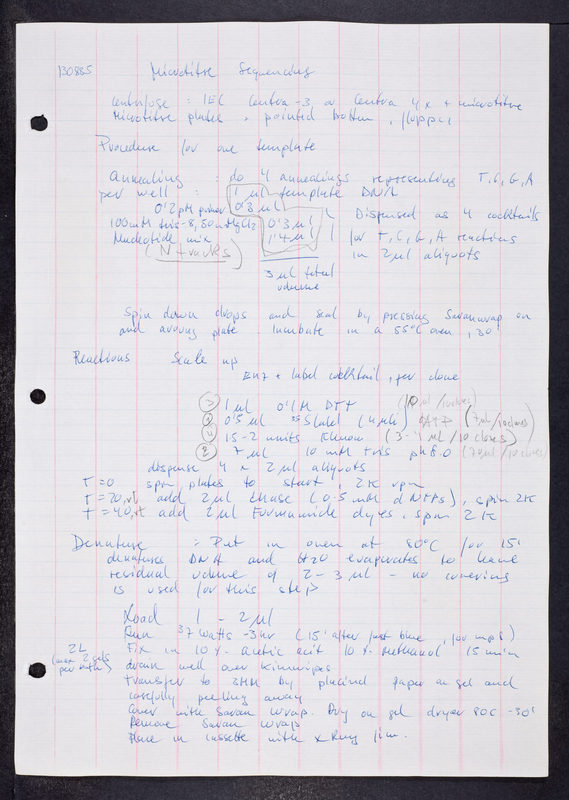 130885 Microtitre Sequencing
Centrifuge : IEC Centra-3 or Centra 4x + microtitre
Microtitre plates, pointed bottom, floppy
Procedure for one template
Annealing : do 4 annealings representing T, C, G, A
per well : 1 μl template DNA
0.2 pM primer 0.3 μl
100mM tris-8, 50mMgCl2 0.3 μl Dispensed as 4 cocktails
Nucleotide mix 1.4 μl for T, C, G, A reactions
(N + tracks) in 2 μl aliquots
3 μl total
volume
Spin down drops and seal by pressing Saranwrap on
and around plate. Incubate in a 55°C oven, 30'
Reactions Scale up
Enz + label cocktail, per clone
1 μl 0.1M DTT (10 μl/10 clones)
0.5 μl 35S label (4 μCi) dATP (7 μl/10 clones)
1.5-2 units Klenow (3-4 μl/10 clones)
7 μl 10 mM tris pH 8.0 (70 μl/10 clones)
dispense 4 x 2 μl aliquots
T=0 spin plates to start, 2K rpm
T=20, rt add 2 μl chase (0.5 mM dNTPs), spin 2K
T=40, rt add 2 μl Formamide dyes, spin 2K
Denature : Put in oven at 80°C for 15'
denatures DNA and H2O evaporates to leave
residual volume of 2-3 μl - no covering
is used for this step
Load 1 - 2 μl
Run 37 watts - 3hr (15' after just blue, for mp8)
2L Fix in 10% acetic acid 10% methanol 15 min
(max 2 gels drain well over kimwipes
per bath) transfer to 3MM by placind paper on gel and
carefully peeling away
Cover with Saran wrap. Dry on gel dryer 80C -30'
Remove Saran wrap
Place in cassette with x Ray film.